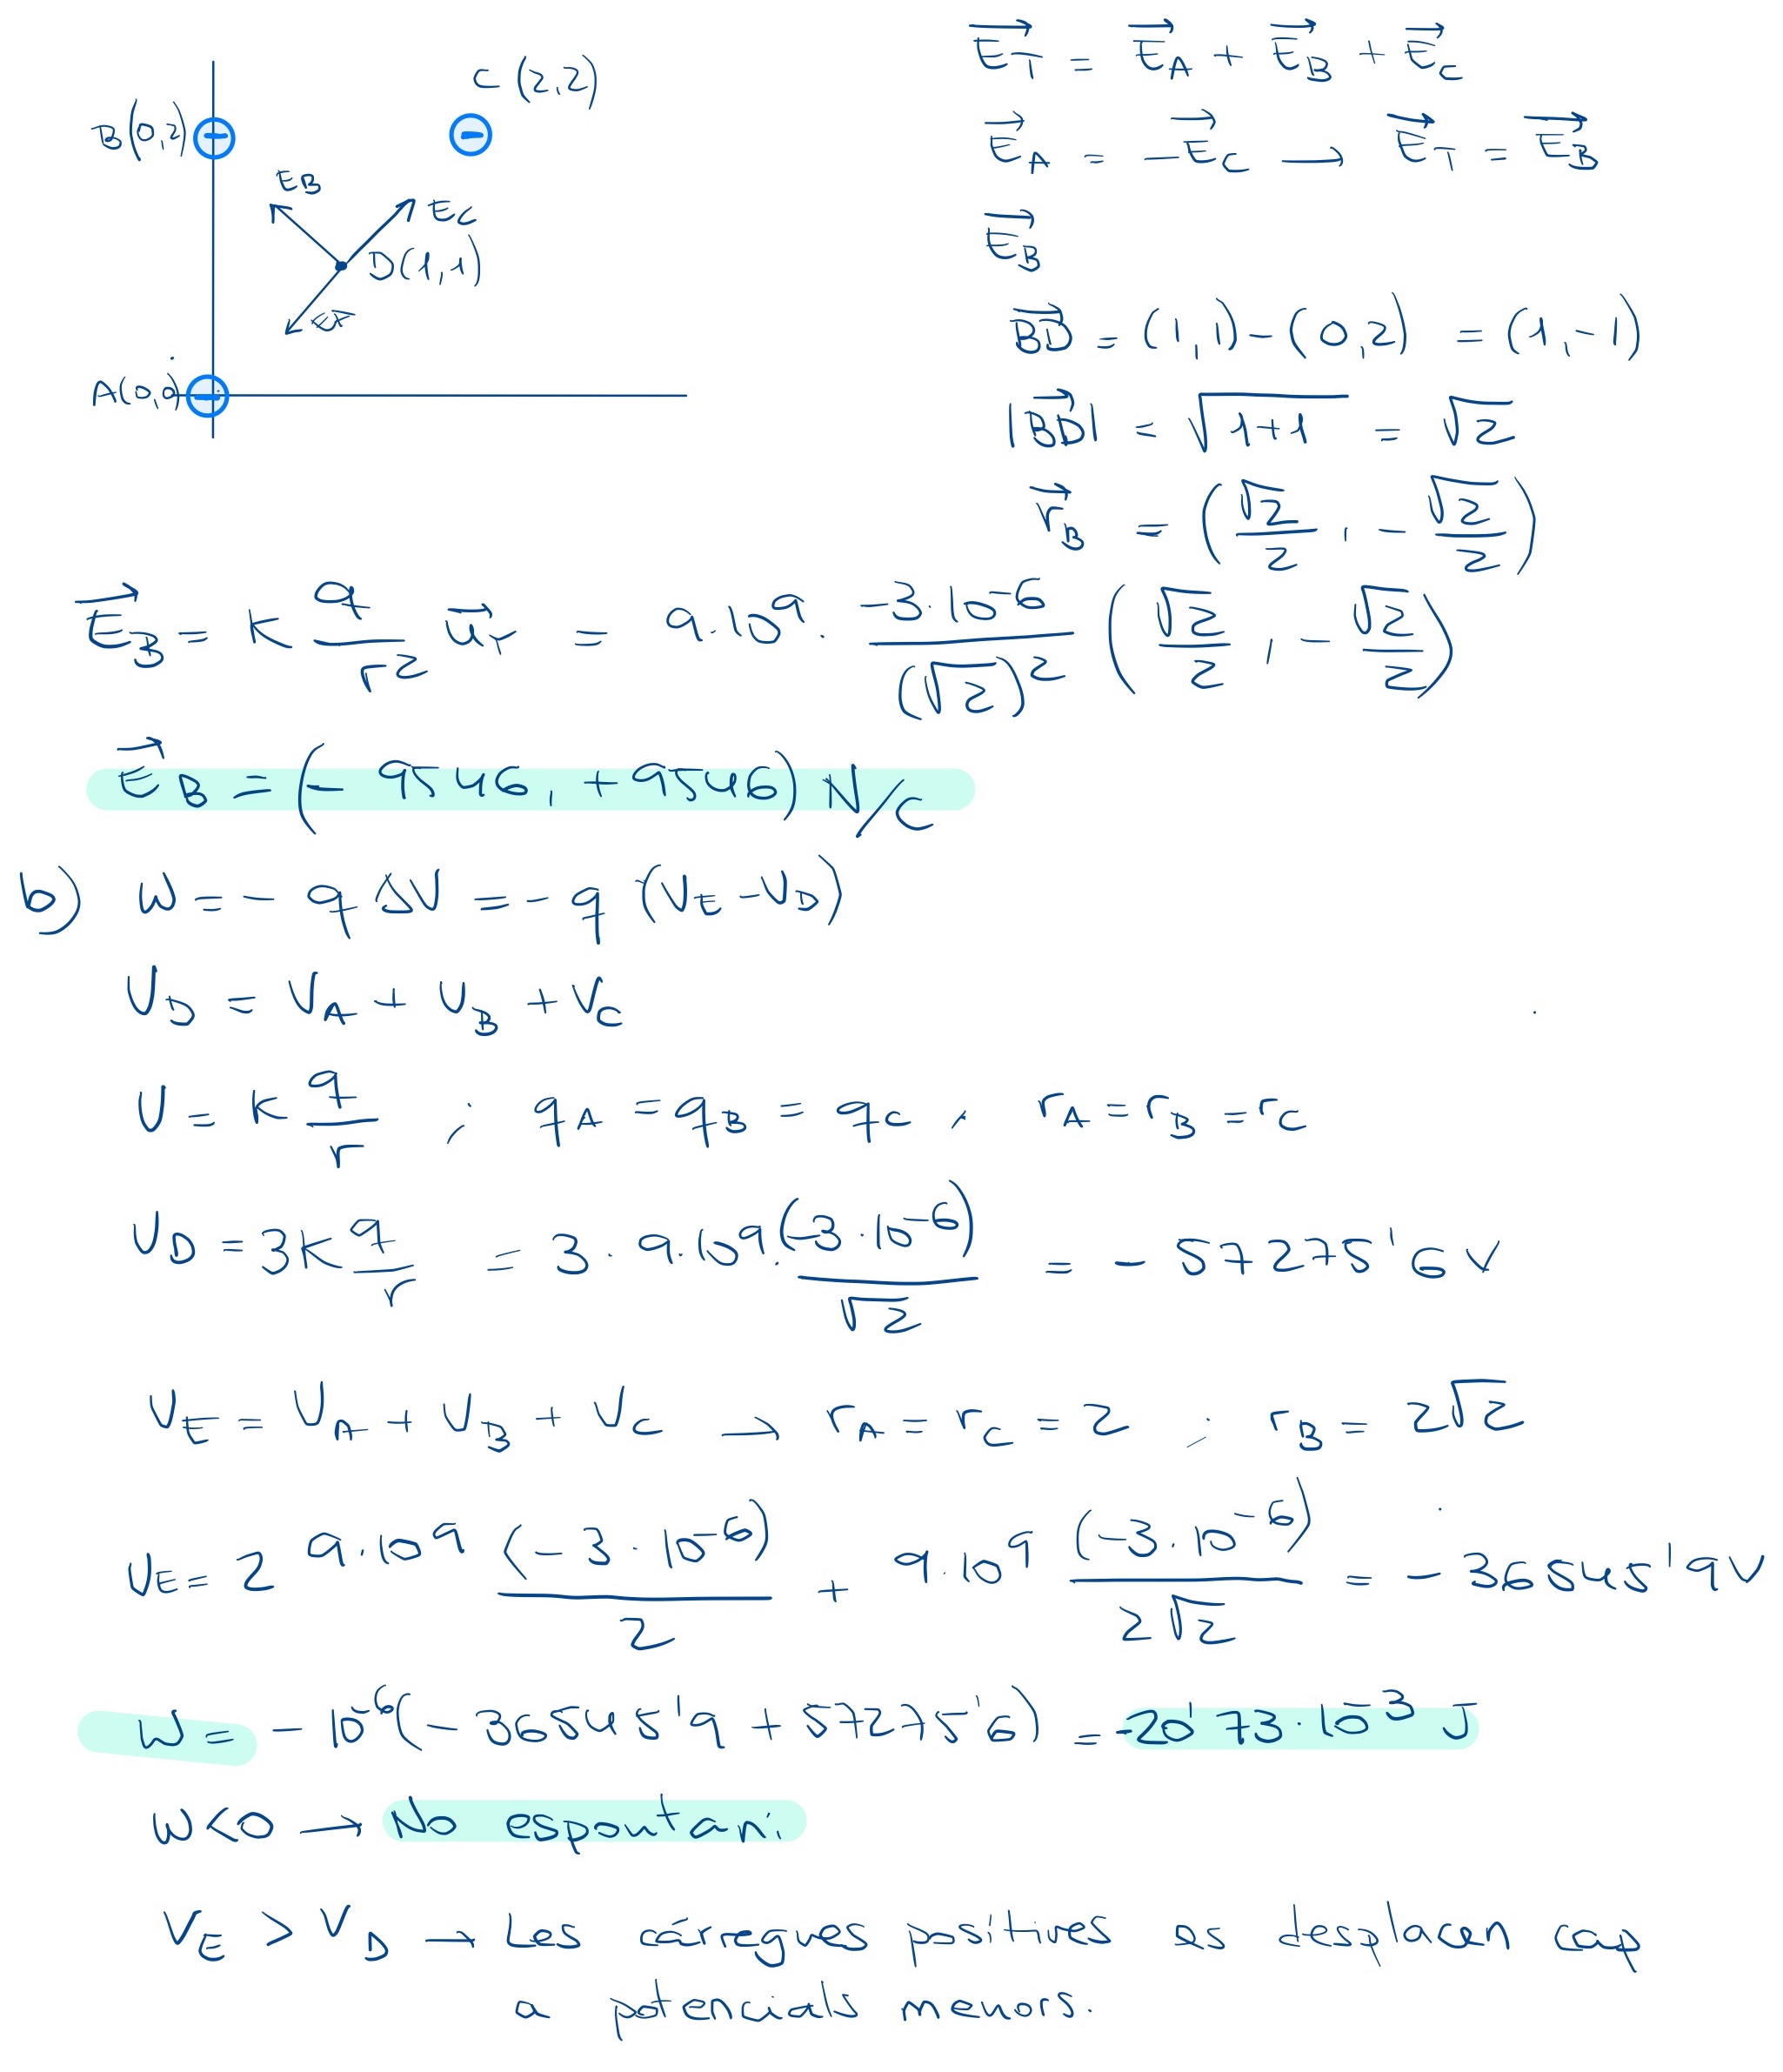 C (2,2)
B(0,2)
E_B
E_C
D(1,1)
A(0,0)
E_T = E_A + E_B + E_C
E_A = -E_C → E_T = E_B
E_B
BD = (1,1) - (0,2) = (1,-1)
|BD| = √(1+1) = √2
r_B = (√2/2, -√2/2)
E_B = K q/r² u_r = 9·10⁹ · -3·10⁻⁶/(√2)² (√2/2, -√2/2)
E_B = (-9546, +9546) N/C
b) W = -q ΔV = -q (V_E - V_D)
V_D = V_A + V_B + V_C
V = K q/r ; q_A = q_B = q_C , r_A = r_B = r_C
V_D = 3K q/r = 3 · 9·10⁹ · (-3·10⁻⁶)/√2 = -57275'6 V
V_E = V_A + V_B + V_C → r_A = r_C = 2 ; r_B = 2√2
V_E = 2 9·10⁹ (-3·10⁻⁶)/2 + 9·10⁹ (-3·10⁻⁶)/2√2 = -36545'9 V
W = -10⁻⁶(-36545'9 + 57275'6) = -20'73·10⁻³ J
W<0 → No espontani
V_E > V_D → Les càrregues positives es desplacen cap
a potencials menors.